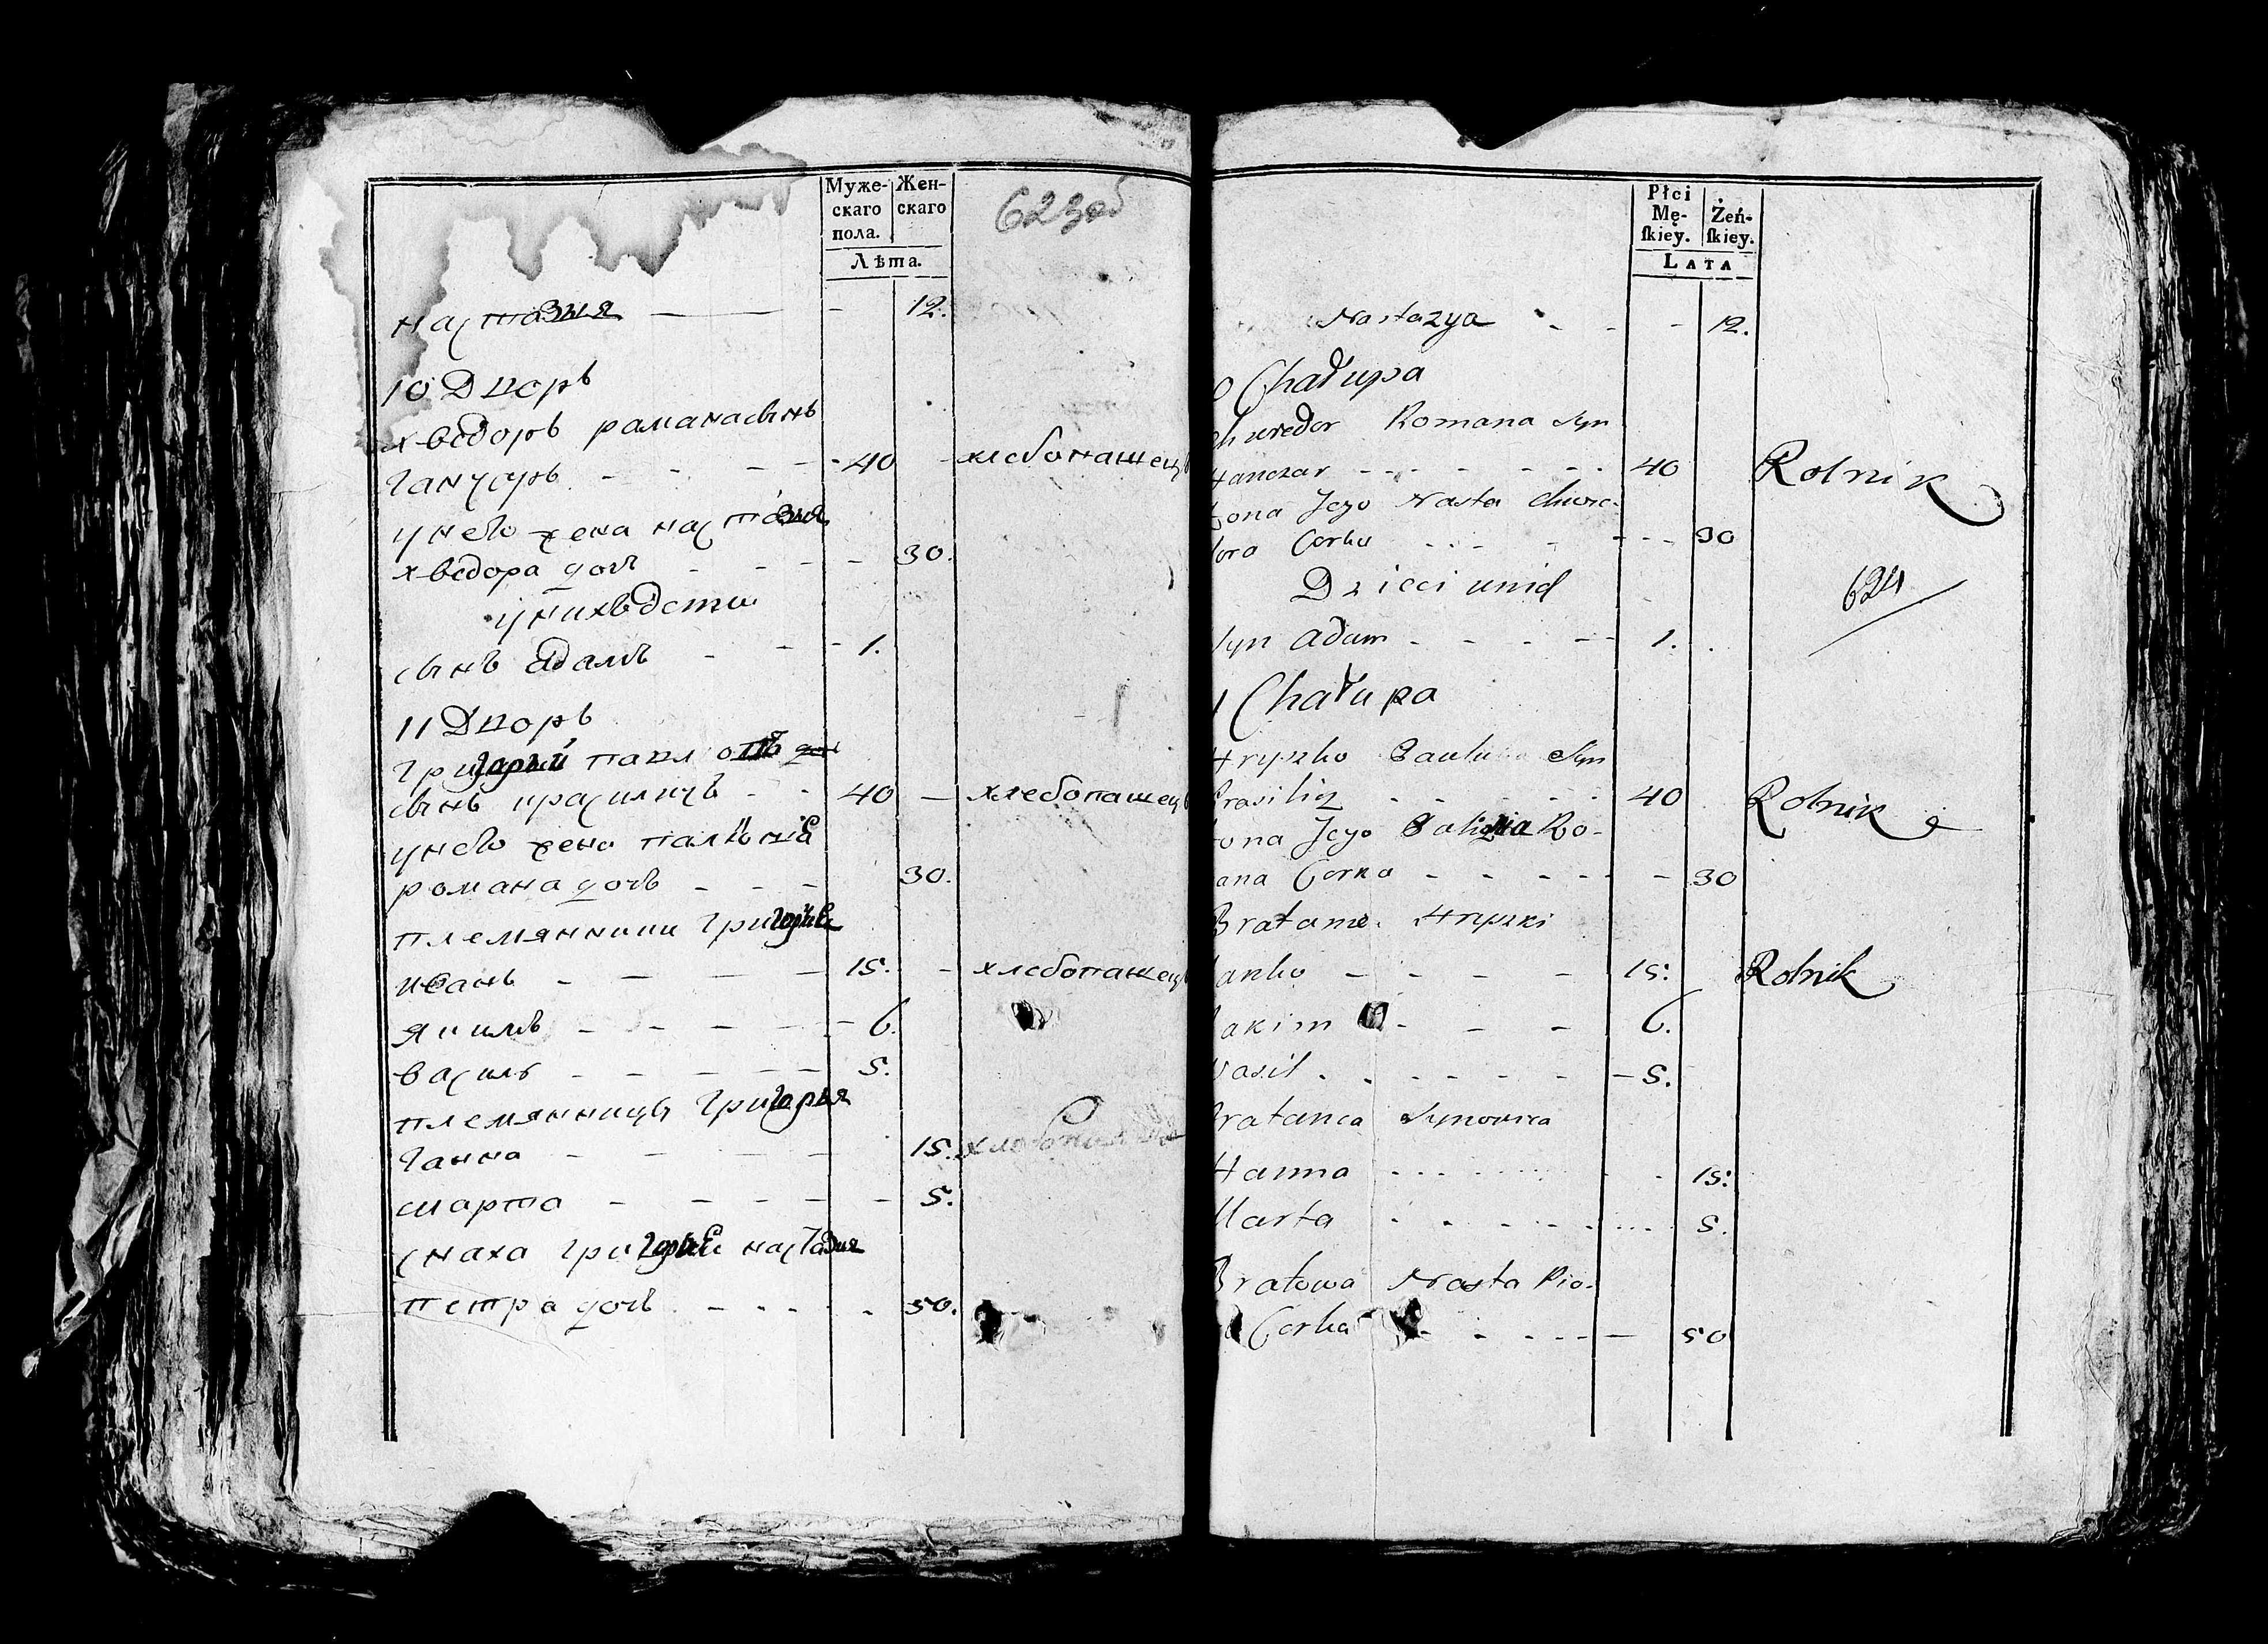 Муже-
скаго
пола.
Жен-
скаго
Лѣта.
623об
настазия — — — 12.
10 Дворъ
хведоръ рамана сынъ
ганчаръ - - - 40 - хлебопашецъ
у него жена настазия
хведора дочь - - - 30.
у них дети
сынъ адамъ - - - 1.
11 Дворъ
григорий павл
сынъ красиличъ - - 40 — хлебопашецъ
у него жена
романа дочь - - - 30.
племянники григория
иванъ - - - 15. - хлебопашецъ
якимъ - - - 6.
василь - - - 5.
племянницы григория
ганна - - - 15.
марта - - - 5.
снаха григория настазия
петра дочь - - - 50.
Płci
Mę-
ſkiey.
Żeń-
ſkiey.
LATA
Nastazya - - - 12.
0 Chałupa
chwedor Romana Syn
Hanczar - - - 40 Rolnik
żona Jego Nasta chwe-
dora Corka - - - 30
Dzieci unich
624
Syn adam - - - 1.
1 Chałupa
Hryszko Pawła Syn
Krasilicz - - - 40 Rolnik
żona Jego Ro-
mana Corka - - - 30
Bratanie Hryszki
Janko - - - 15: Rolnik
Jakim - - - 6.
Wasil - - - 5.
Bratanca Synowica
Hanna - - - 15:
Marta - - - 5.
Bratowa Nasta Pio-
Corka - - - 50